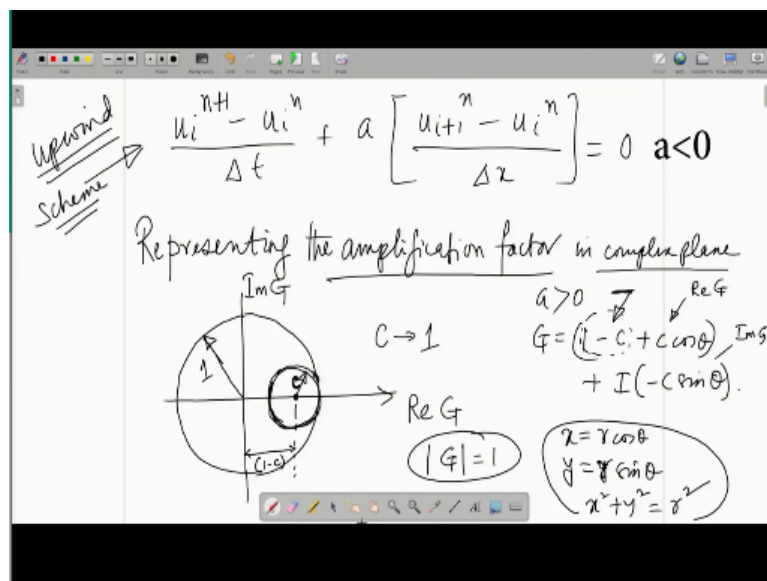 upwind scheme
u_i^{n+1} - u_i^n / Δt + a [ u_{i+1}^n - u_i^n / Δx ] = 0 a<0
Representing the amplification factor in complex plane
Im G
a>0
Re G
C → 1
G = (1 - C + C cosθ)
Im G
+ I (-C sinθ).
1
C
Re G
(1-C)
|G| = 1
x = r cosθ
y = r sinθ
x² + y² = r²